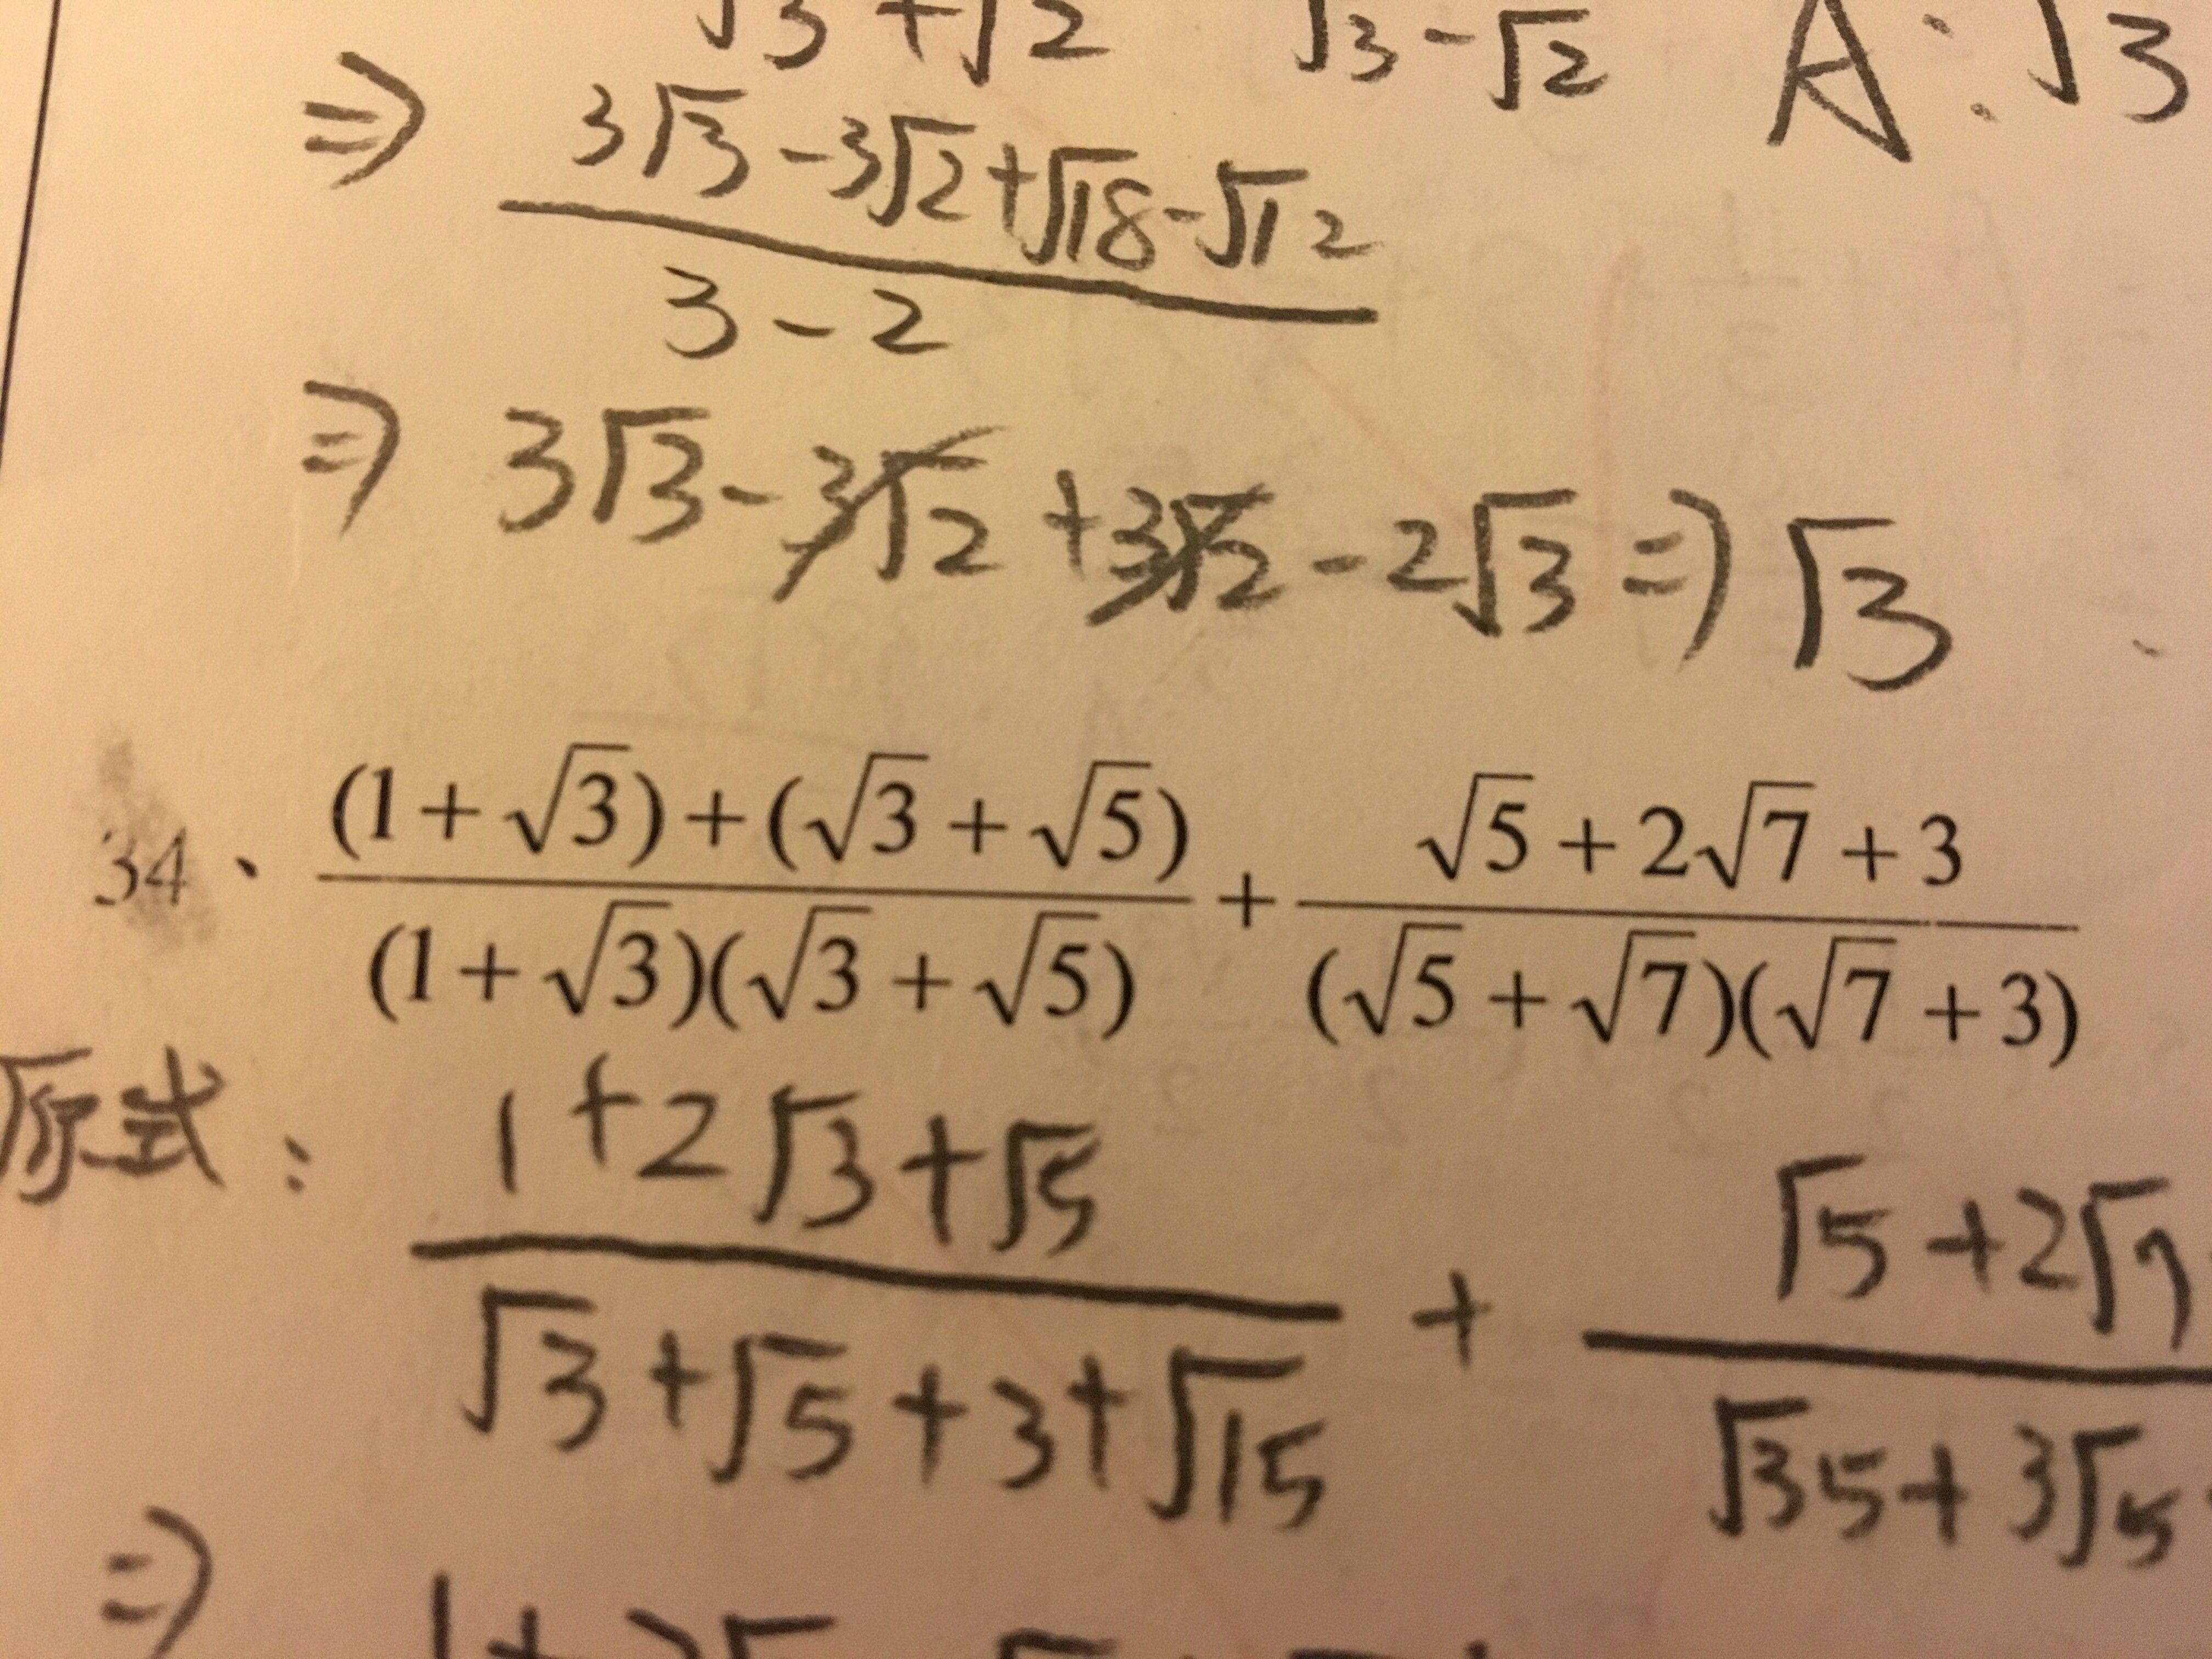 √3+√2 √3-√2 A:√3
⇒ (3√3-3√2+√18-√12)/(3-2)
⇒ 3√3-3√2+3√2-2√3 ⇒ √3
34、((1+√3)+(√3+√5))/((1+√3)(√3+√5)) + (√5+2√7+3)/((√5+√7)(√7+3))
原式: (1+2√3+√5)/(√3+√5+3+√15) + (√5+2√7)/(√35+3√5
⇒